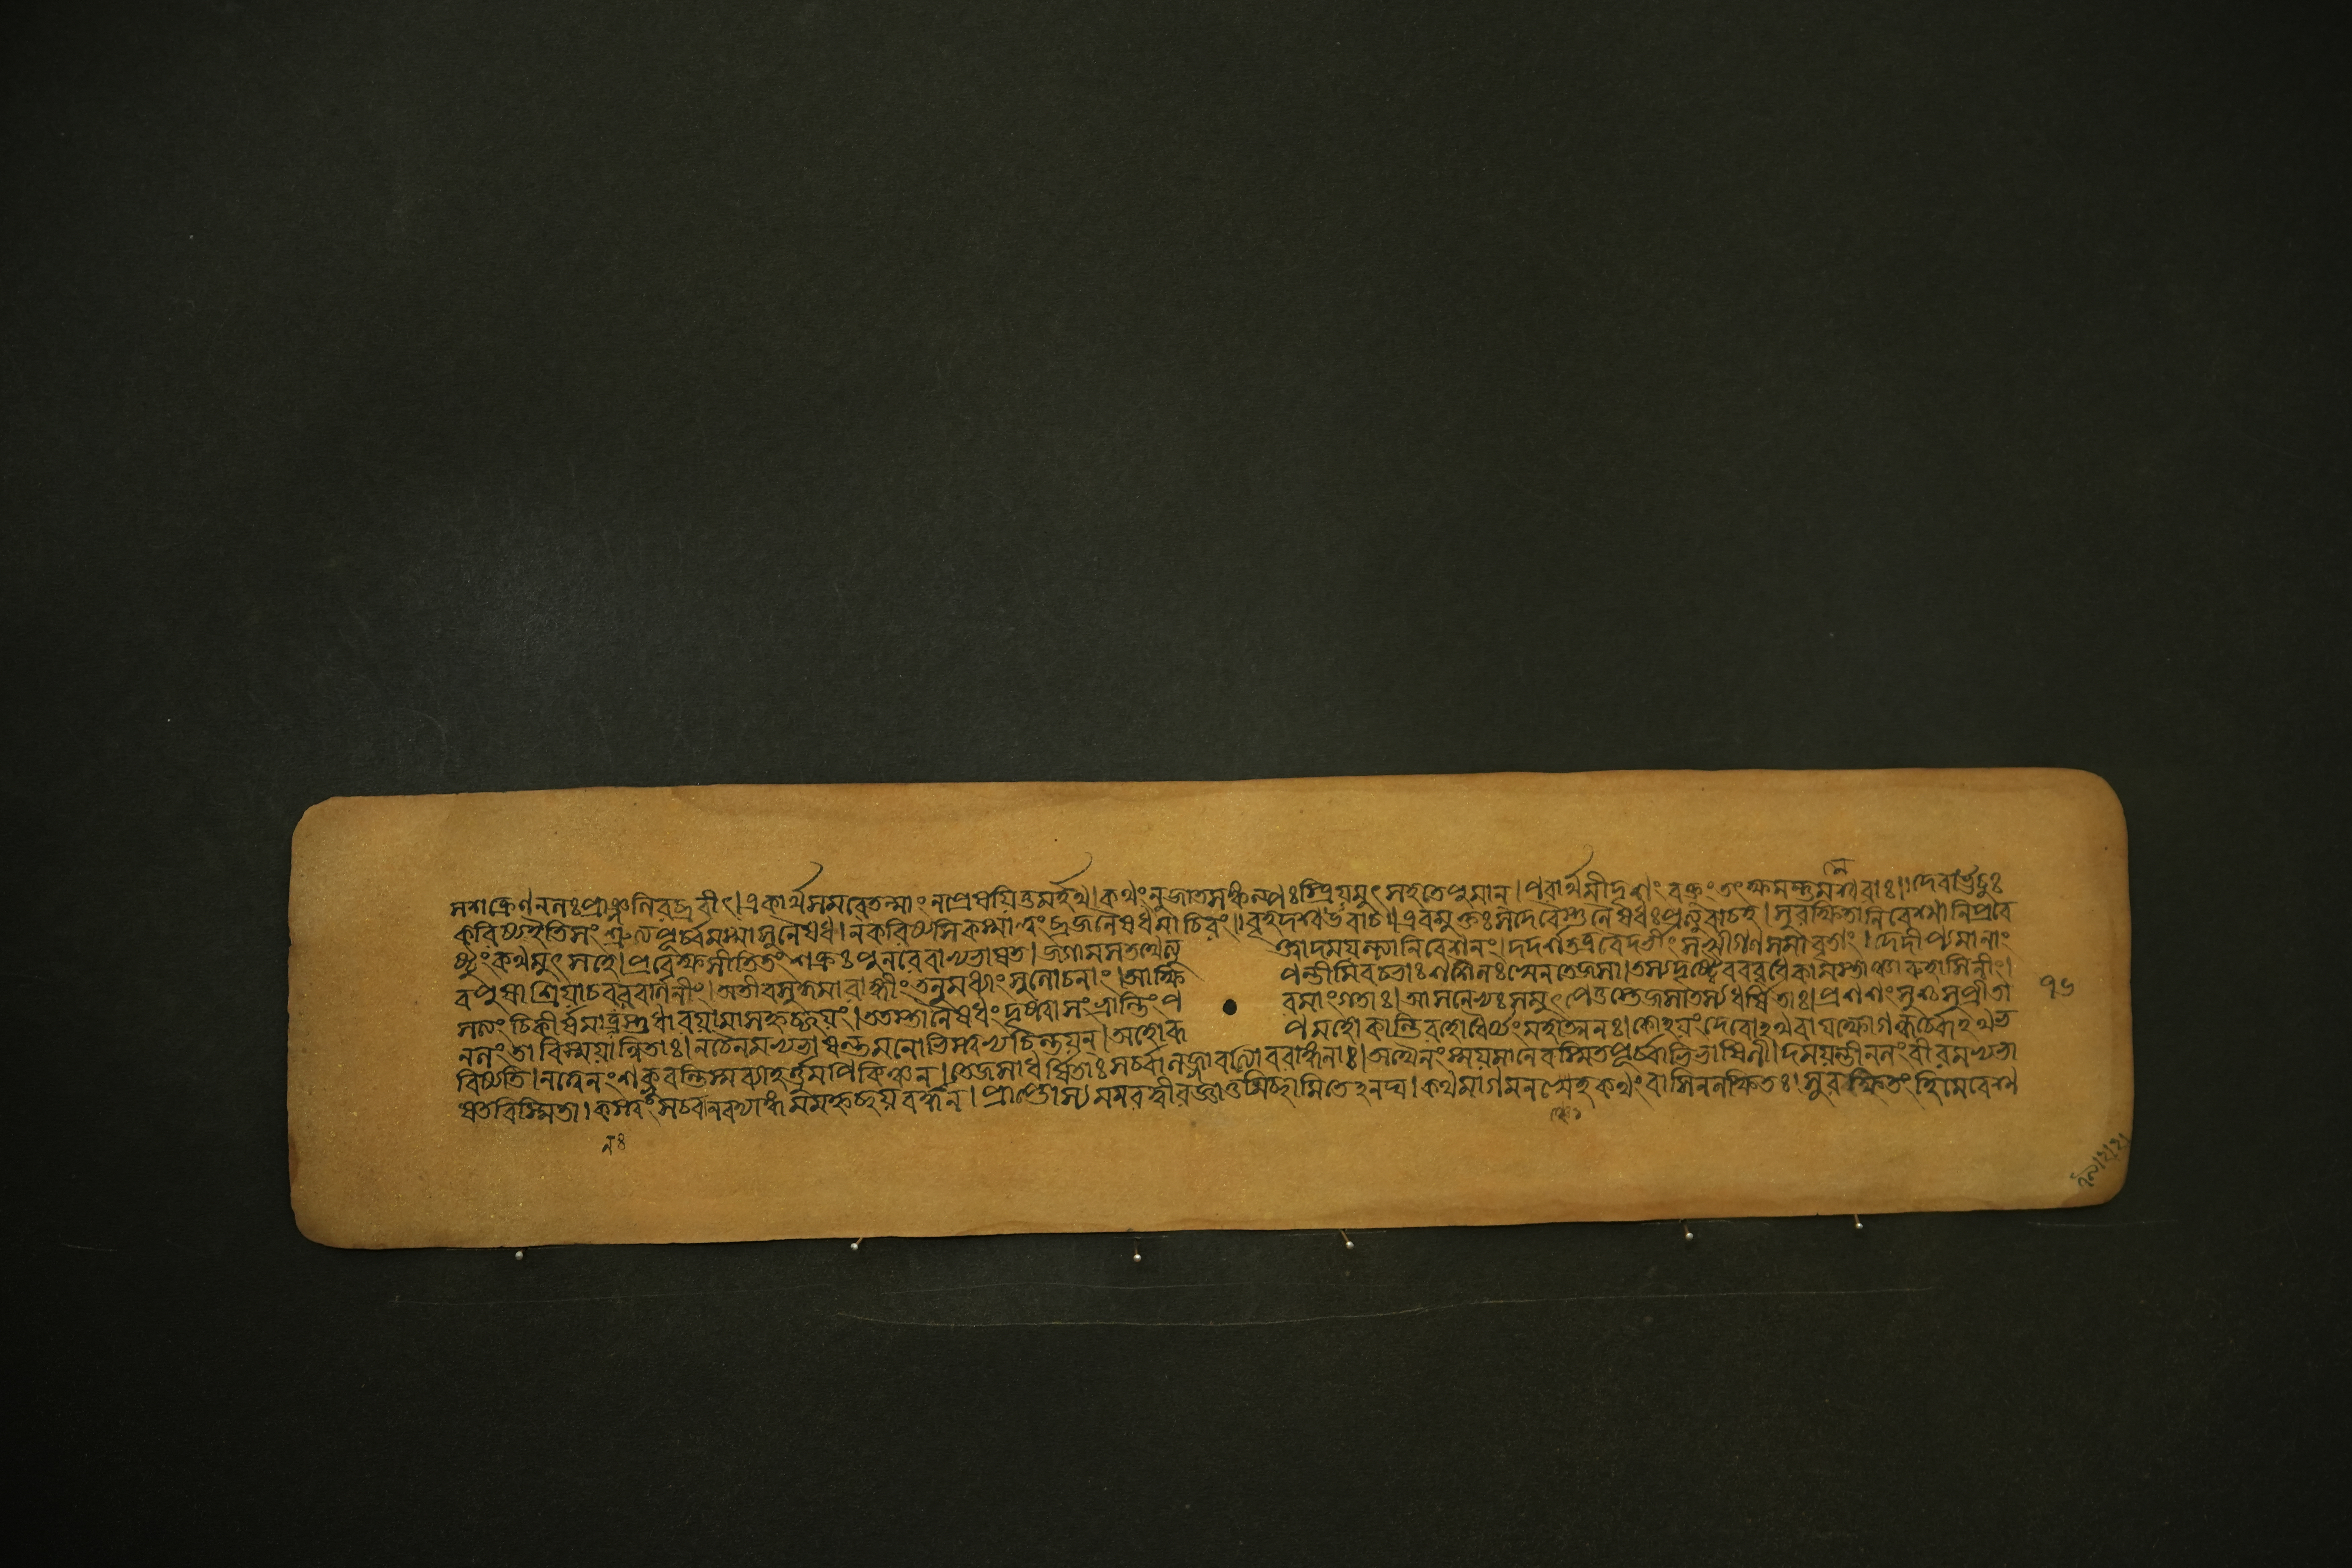 সশক্রেণনলঃপ্রাঞ্জলিরব্রবীৎ।একার্থসমবেতন্মাংনপ্রেষয়িতুমর্হথ।কথংনুজাতসঙ্কল্পঃস্ত্রিয়মুৎসহতেপুমান্।পরার্থমীদৃশংবক্তুংতৎক্ষমন্তুমহেশ্বরাঃ।।দেবাঊচুঃ
করিষ্যইতিসংশ্রুত্যপূর্ব্বমস্মাসুনৈষধ।নকরিষ্যসিকস্মাত্ত্বংব্রজনৈষধমাচিরং।।বৃহদশ্বউবাচ।।এবমুক্তঃসদেবৈস্তুনৈষধঃপ্রত্যুবাচহ।সুরক্ষিতানিবেশ্মানিপ্রবে
ষ্টুংকথমুৎসহে।প্রবেক্ষ্যসীতিতংশক্রঃপুনরেবাভ্যভাষত।জগামসতথেত্যু ক্ত্বাদময়ন্ত্যানিবেশনং।দদর্শতত্রবৈদর্ভীংসখীগণসমাবৃতাং।দেদীপ্যমানাং
বপুষাশ্রিয়াচবরবর্ণিনীং।অতীবসুকুমারাঙ্গীংতনুমধ্যাংসুলোচনাং।আক্ষি পন্তীমিবচভাঃশশিনঃস্বেনতেজসা।তস্যদৃষ্ট্বৈবববৃধেকামস্তাঞ্চারুহাসিনীং।
সত্যংচিকীর্ষমাণস্তুধারয়ামাসহৃচ্ছয়ং।ততস্তানৈষধংদৃষ্ট্বাসংভ্রান্তিংপ রমাংগতাঃ।আসনেভ্যঃসমুৎপেতুস্তেজসাতস্যধর্ষিতাঃ।প্রশশংসুশ্চসুপ্রীতা ১৬
নলংতাবিস্ময়ান্বিতাঃ।নচৈনমভ্যভাষন্তমনোভিস্ত্বভ্যচিন্তয়ন্।অহোরূ পমহোকান্তিরহোধৈর্য্যংমহাত্মনঃ।কোঽয়ংদেবোঽথবাযক্ষোগন্ধর্ব্বোঽথভ
বিষ্যতি।নত্বেনংশক্নুবন্তিস্মব্যাহর্ত্তুমপিকিঞ্চন।তেজসাধর্ষিতাঃসর্ব্বালজ্জাবত্যোবরাঙ্গনাঃ।অথৈনংস্ময়মানেবস্মিতপূর্ব্বাভিভাষিণী।দময়ন্তীনলংবীরমভ্যভা
ষতবিস্মিতা।কস্ত্বংসর্ব্বানবদ্যাঙ্গমমহৃচ্ছয়বর্দ্ধন।প্রাপ্তোস্যমরবদ্বীরজ্ঞাতুমিচ্ছামিতেঽনঘ।কথমাগমনঞ্চেহকথংবাসিনলক্ষিতঃ।সুরক্ষিতংহিমেবেশ্ম
নঃ